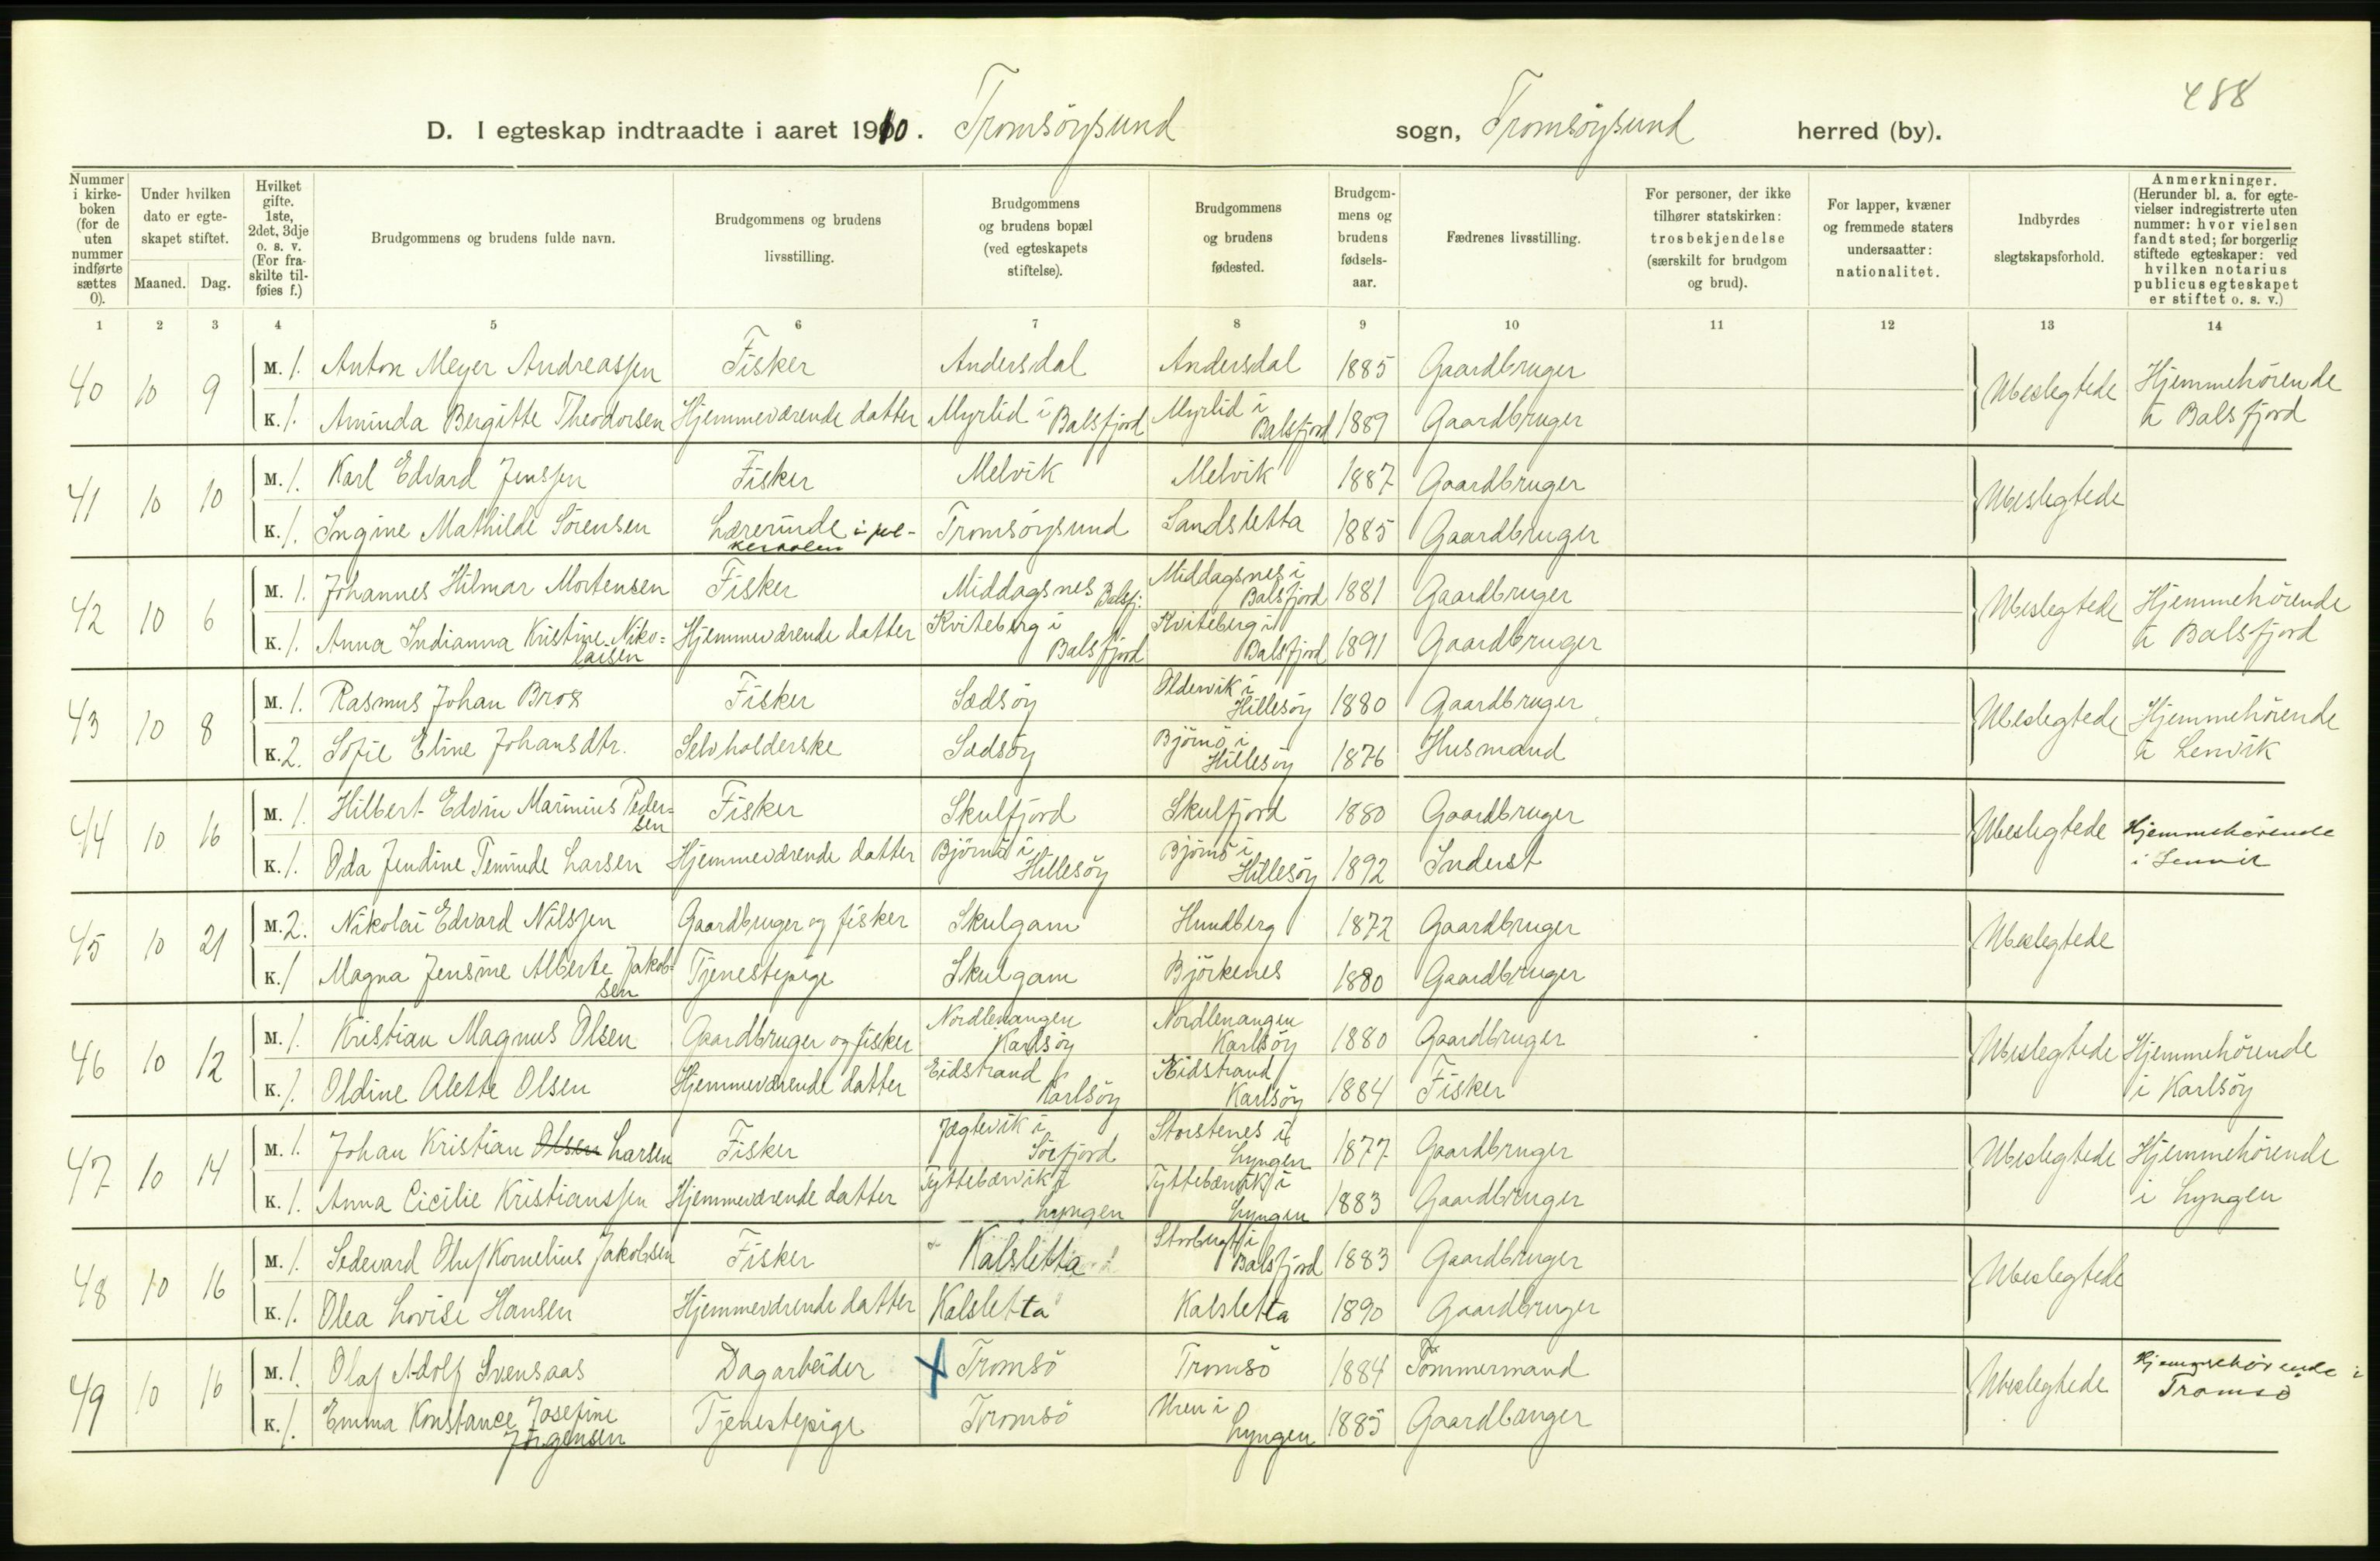 488
D. I egteskap indtraadte i aaret 1910. Tromsöysund sogn, Tromsöysund herred (by).
Nummer i kirkeboken (for de uten nummer indførte sættes 0).
Under hvilken dato er egteskapet stiftet.
Maaned. Dag.
Hvilket gifte. 1ste, 2det, 3dje o. s. v. (For fraskilte tilføies f.)
Brudgommens og brudens fulde navn.
Brudgommens og brudens livsstilling.
Brudgommens og brudens bopæl (ved egteskapets stiftelse).
Brudgommens og brudens fødested.
Brudgommens og brudens fødselsaar.
Fædrenes livsstilling.
For personer, der ikke tilhører statskirken: trosbekjendelse (særskilt for brudgom og brud).
For lapper, kvæner og fremmede staters undersaatter: nationalitet.
Indbyrdes slegtskapsforhold.
Anmerkninger. (Herunder bl. a. for egtevielser indregistrerte uten nummer: hvor vielsen fandt sted; for borgerlig stiftede egteskaper: ved hvilken notarius publicus egteskapet er stiftet o. s. v.)
1 2 3 4 5 6 7 8 9 10 11 12 13 14
40 10 9 M. 1. Anton Meyer Andreassen Fisker Andersdal Andersdal 1885 Gaardbruger Ubeslegtede Hjemmehörende i Balsfjord
K. 1. Aminda Bergitte Theodorsen Hjemmeværende datter Myrlid i Balsfjord Myrlid i Balsfjord 1889 Gaardbruger
41 10 10 M. 1. Karl Edvard Jenssen Fisker Melvik Melvik 1887 Gaardbruger Ubeslegtede
K. 1. Ingine Mathilde Sörensen Lærerinde i folkeskolen Tromsöysund Sandsletta 1885 Gaardbruger
42 10 6 M. 1. Johannes Hilmar Mortensen Fisker Middagsnes Balsfj. Middagsnes i Balsfjord 1881 Gaardbruger Ubeslegtede Hjemmehörende i Balsfjord
K. 1. Anna Indianna Kristine Nikolaisen Hjemmeværende datter Kviteberg i Balsfjord Kviteberg i Balsfjord 1891 Gaardbruger
43 10 8 M. 1. Rasmus Johan Brox Fisker Sædsöy Oldervik i Hillesöy 1880 Gaardbruger Ubeslegtede Hjemmehörende i Lenvik
K. 2. Sofie Eline Johansdtr. Selvholderske Sædsöy Björnö i Hillesöy 1876 Husmand
44 10 16 M. 1. Hilbert Edvin Marinius Pedersen Fisker Skulfjord Skulfjord 1880 Gaardbruger Ubeslegtede Hjemmehörende i Lenvik
K. 1. Oda Jendine Larsen Hjemmeværende datter Björnö i Hillesöy Björnö i Hillesöy 1892 Inderst
45 10 21 M. 2. Nikolai Edvard Nilssen Gaardbruger og fisker Skulgam Hundberg 1872 Gaardbruger Ubeslegtede
K. 1 Magna Jensine Alberte Jakobsen Tjenestepige Skulgam Björkenes 1880 Gaardbruger
46 10 12 M. 1. Kristian Magnus Olsen Gaardbruger og fisker Nordlenangen Karlsöy Nordlenangen Karlsöy 1880 Gaardbruger Ubeslegtede Hjemmehörende i Karlsöy
K. 1. Oldine Alette Olsen Hjemmeværende datter Eidstrand Karlsöy Eidstrand Karlsöy 1884 Fisker
47 10 14 M. 1. Johan Kristian Olsen Larsen Fisker Jægtevik i Sörfjord Storstenes i Lyngen 1877 Gaardbruger Ubeslegtede Hjemmehörende i Lyngen
K. 1. Anna Cicilie Kristianssen Hjemmeværende datter Tyttebærvik i Lyngen Tyttebærvik i Lyngen 1883 Gaardbruger
48 10 16 M. 1. Sedevard Oluf Kornelius Jakobsen Fisker Kalsletta Storbugt i Balsfjord 1883 Gaardbruger Ubeslegtede
K. 1. Olea Lovise Hansen Hjemmeværende datter Kalsletta Kalsletta 1890 Gaardbruger
49 10 16 M. 1. Olaf Adolf Svensaas Dagarbeider X Tromsö Tromsö 1884 Tömmermand Ubeslegtede Hjemmehörende i Tromsö
K. 1. Emma Konstance Josefine Jörgensen Tjenestepige Tromsö Uren i Lyngen 1885 Gaardbruger